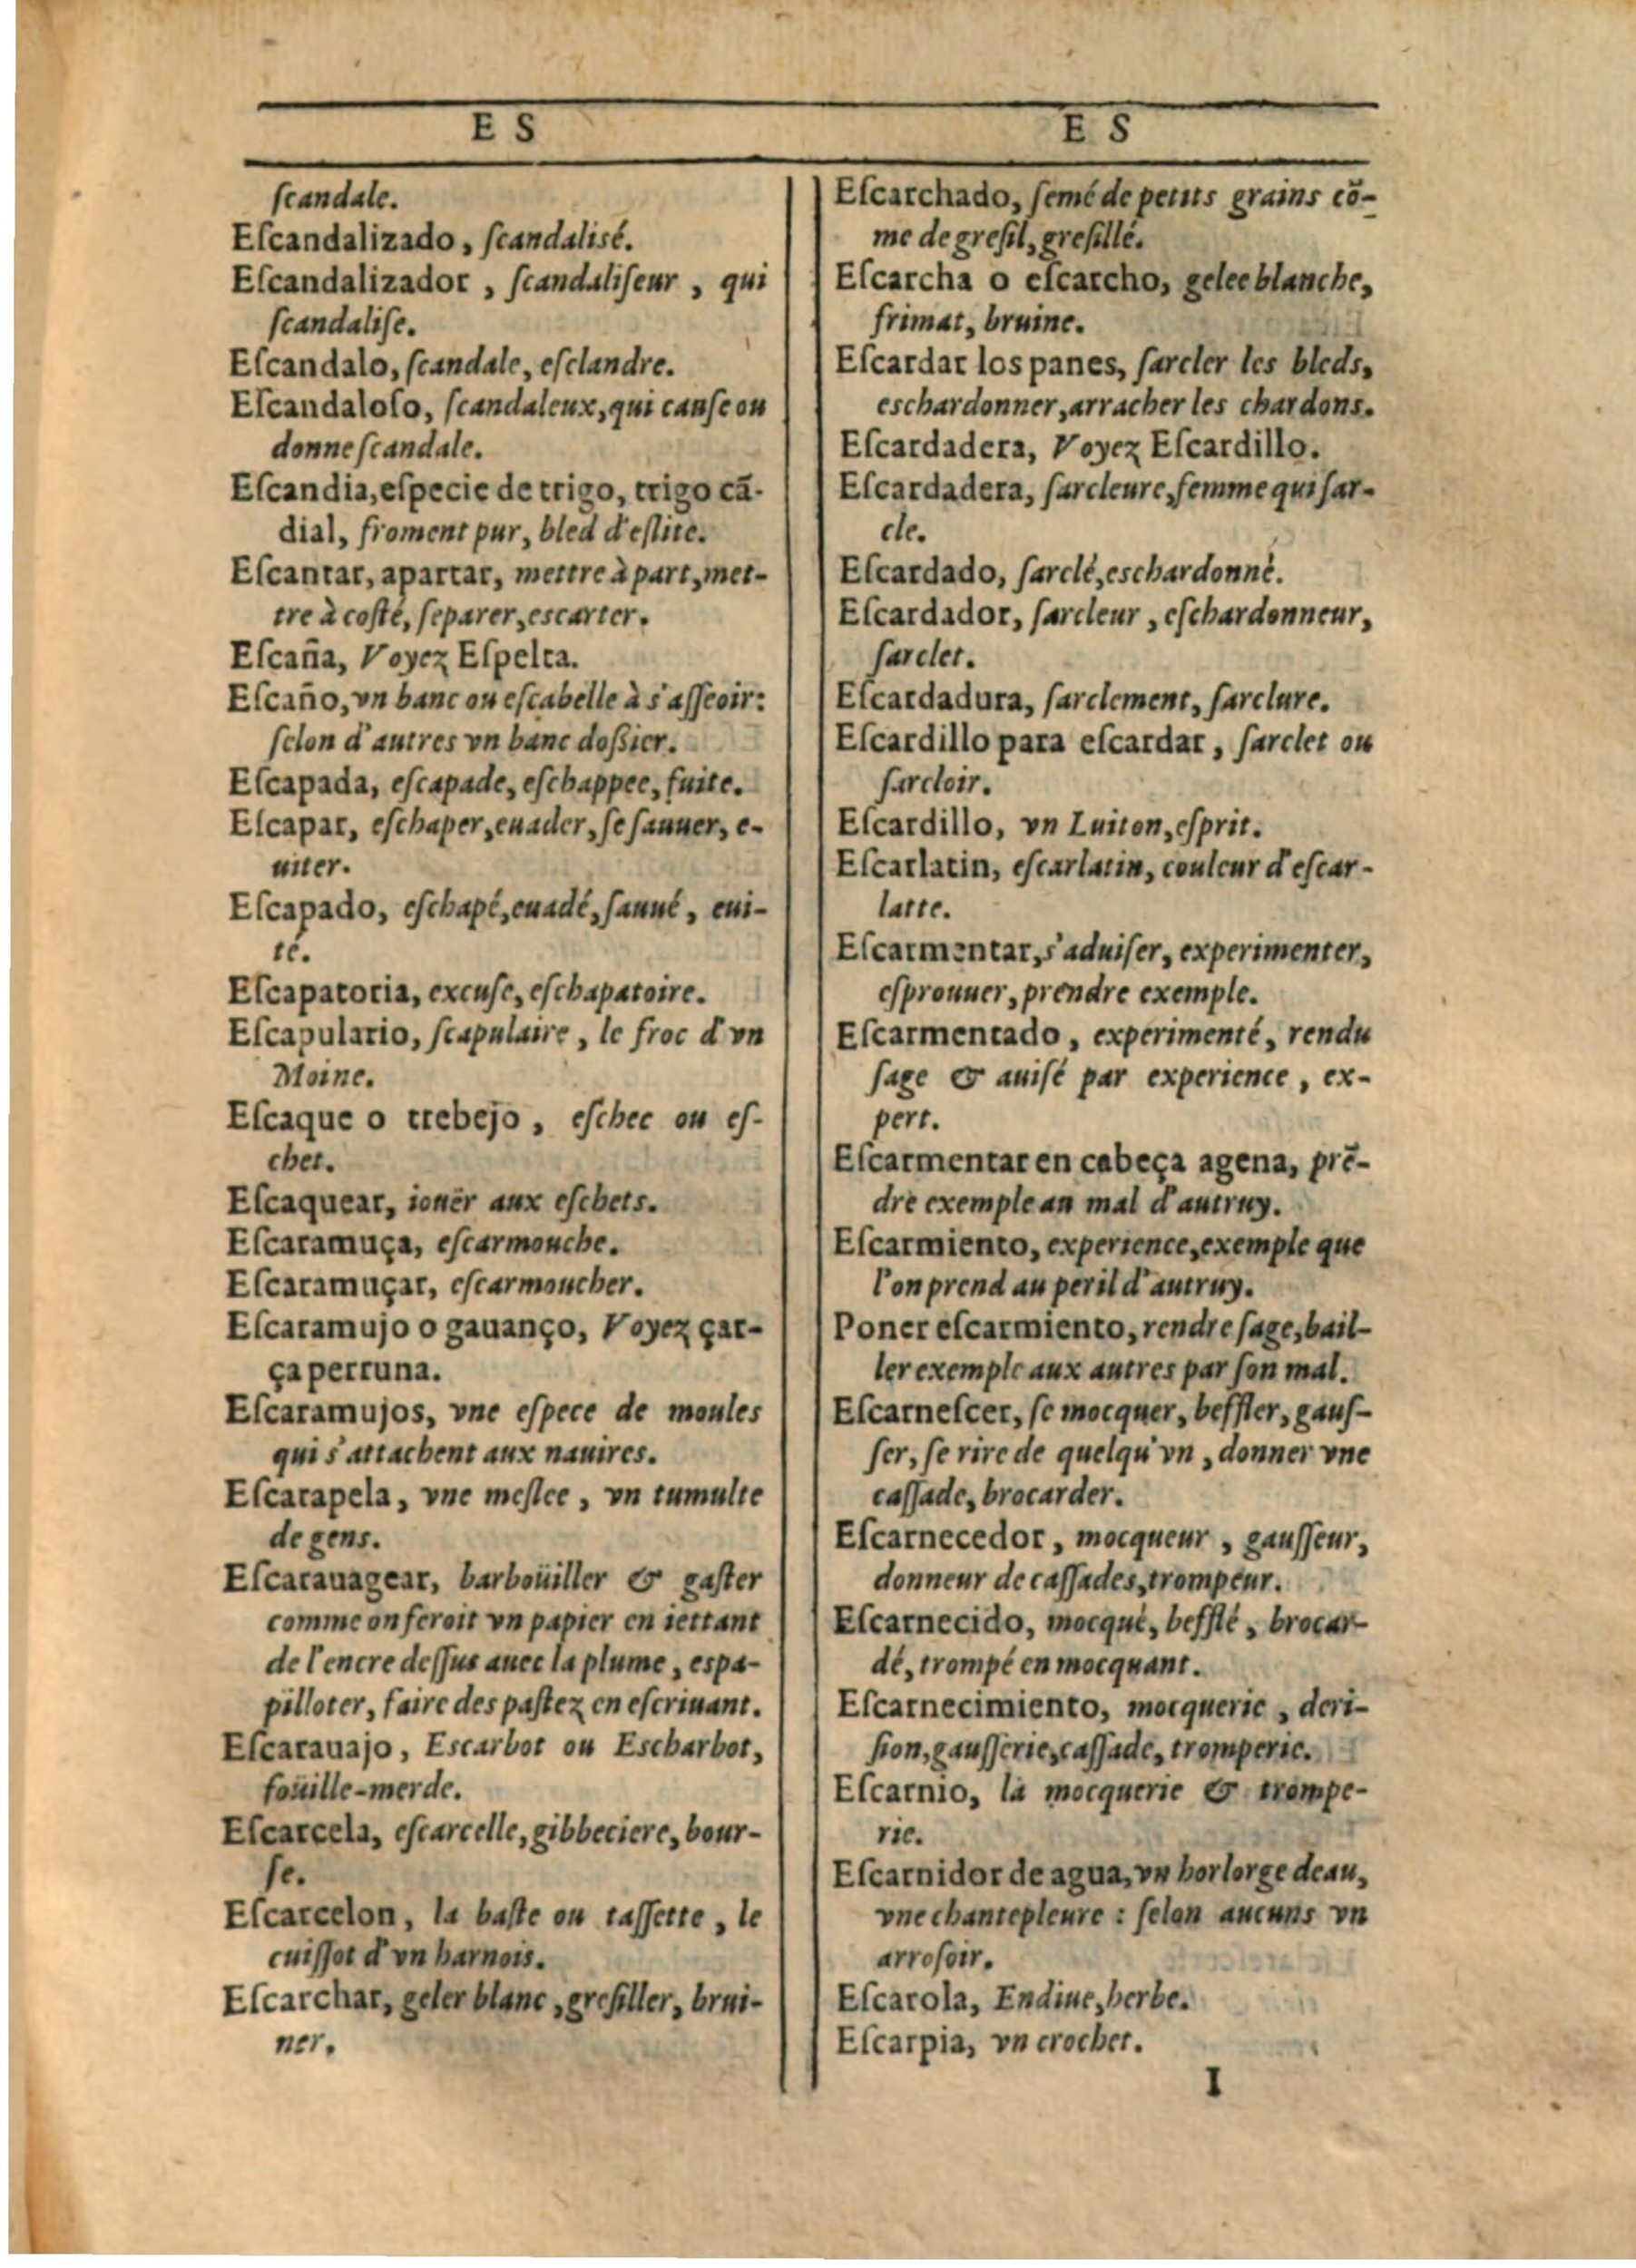 E S
ſcandale.
Eſcandalizado, ſcandalisé.
Eſcandalizador, ſcandaliſeur, qui
ſcandaliſe.
Eſcandalo, ſcandale, eſclandre.
Eſcandaloſo, ſcandaleux, qui cauſe ou
donne ſcandale.
Eſcandia, eſpecie de trigo, trigo cã-
dial, froment pur, bled d'eſlite.
Eſcantar, apartar, mettre à part, met-
tre à coſté, ſeparer, escarter.
Eſcaña, Voyez Eſpelta.
Eſcaño, vn banc ou eſcabelle à s'aſſeoir:
ſelon d'autres vn banc doſsier.
Eſcapada, eſcapade, eſchappee, fuite.
Eſcapar, eſchaper, euader, ſe ſauuer, e-
uiter.
Eſcapado, eſchapé, euadé, ſauué, eui-
té.
Eſcapatoria, excuſe, eſchapatoire.
Eſcapulario, ſcapulaire, le froc d'vn
Moine.
Eſcaque o trebejo, eſchec ou eſ-
chet.
Eſcaquear, iouër aux eſchets.
Eſcaramuça, eſcarmouche.
Eſcaramuçar, eſcarmoucher.
Eſcaramujo o gauanço, Voyez çar-
ça perruna.
Eſcaramujos, vne eſpece de moules
qui s'attachent aux nauires.
Eſcarapela, vne meſlee, vn tumulte
de gens.
Eſcarauagear, barboüiller & gaſter
comme on feroit vn papier en iettant
de l'encre deſſus auec la plume, espa-
pilloter, faire des paſtez en eſcriuant.
Eſcarauajo, Escarbot ou Escharbot,
foüille-merde.
Eſcarcela, eſcarcelle, gibbeciere, bour-
ſe.
Eſcarcelon, la baſte ou taſſette, le
cuiſſot d'vn harnois.
Eſcarchar, geler blanc, greſiller, brui-
ner.
E S
Eſcarchado, ſemé de petits grains cõ-
me de greſil, greſillé.
Eſcarcha o eſcarcho, gelee blanche,
frimat, bruine.
Eſcardar los panes, ſarcler les bleds,
eschardonner, arracher les chardons.
Eſcardadera, Voyez Eſcardillo.
Eſcardadera, ſarcleure, femme qui ſar-
cle.
Eſcardado, ſarclé, eschardonné.
Eſcardador, ſarcleur, eſchardonneur,
ſarclet.
Eſcardadura, ſarclement, ſarclure.
Eſcardillo para eſcardar, ſarclet ou
ſarcloir.
Eſcardillo, vn Luiton, eſprit.
Eſcarlatin, eſcarlatin, couleur d'eſcar-
latte.
Eſcarmentar, s'aduiſer, experimenter,
eſprouuer, prendre exemple.
Eſcarmentado, experimenté, rendu
ſage & auiſé par experience, ex-
pert.
Eſcarmentar en cabeça agena, prẽ-
dre exemple au mal d'autruy.
Eſcarmiento, experience, exemple que
l'on prend au peril d'autruy.
Poner eſcarmiento, rendre ſage, bail-
ler exemple aux autres par ſon mal.
Eſcarneſcer, ſe mocquer, beffler, gauſ-
ſer, ſe rire de quelqu'vn, donner vne
caſſade, brocarder.
Eſcarnecedor, mocqueur, gauſſeur,
donneur de caſſades, trompeur.
Eſcarnecido, mocqué, befflé, brocar-
dé, trompé en mocquant.
Eſcarnecimiento, mocquerie, deri-
ſion, gauſſerie, caſſade, tromperie.
Eſcarnio, la mocquerie & trompe-
rie.
Eſcarnidor de agua, vn horlorge deau,
vne chantepleure : ſelon aucuns vn
arroſoir.
Eſcarola, Endiue, herbe.
Eſcarpia, vn crochet.
I